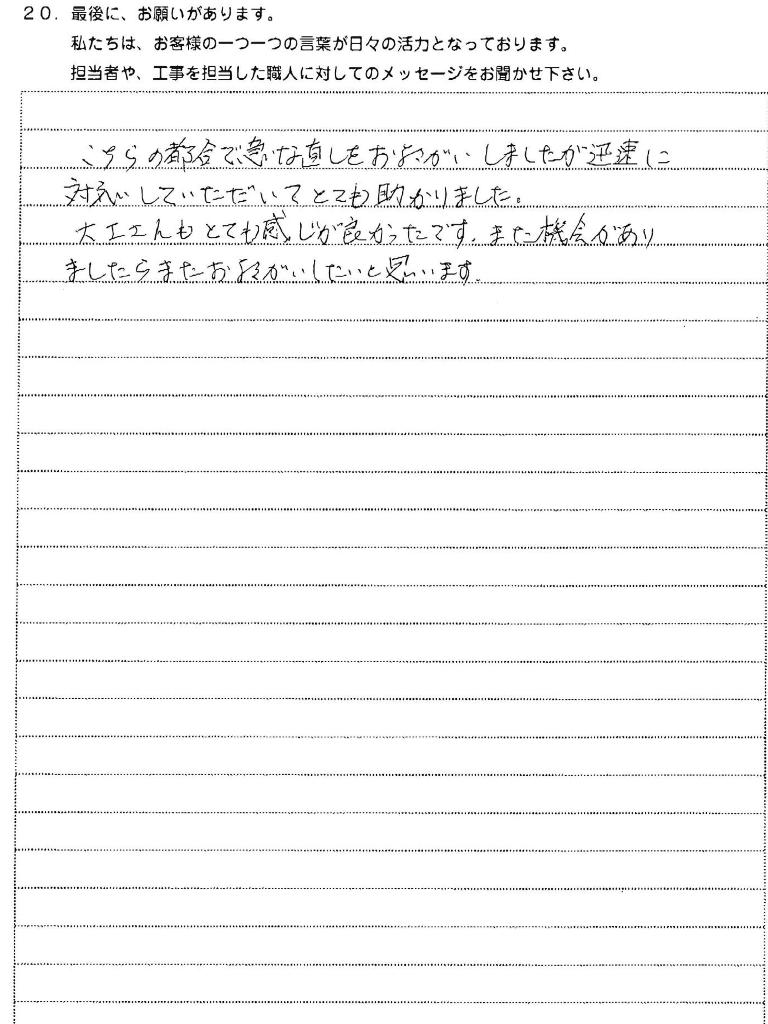 20. 最後に、お願いがあります。
私たちは、お客様の一つ一つの言葉が日々の活力となっております。
担当者や、工事を担当した職人に対してのメッセージをお聞かせ下さい。
こちらの都合で急な直しをおねがいしましたが迅速に
対応していただいてとても助かりました。
大工さんもとても感じが良かったです。また機会があり
ましたらまたおねがいしたいと思います。